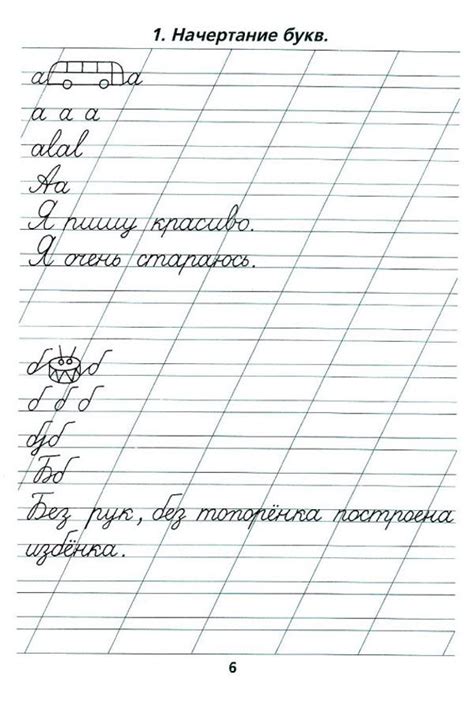 1. Начертание букв.
а а
а а а
аlаl
Аа
Я пишу красиво.
Я очень стараюсь.
б б
б б б
бjб
Бб
Без рук, без топорёнка построена
избёнка.
6